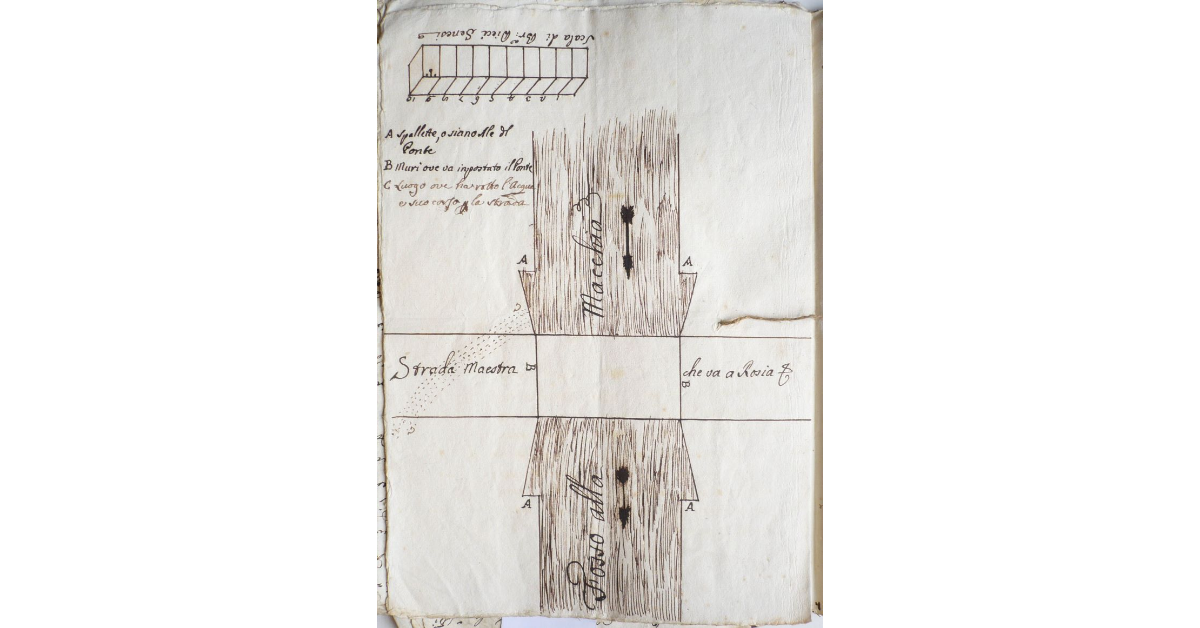 Scala di Bri: Dieci Senesi
10 9 8 7 6 5 4 3 2 1
A Spallette, o siano Ale dl
Ponte
B Muri ove va impostato il Ponte
C Luogo ove ha rotto l'Acqua
e suo corso p la strada
A
A
Macchia
C
Strada Maestra
B
che va a Rosia
B
C
Fosso alla
A
A